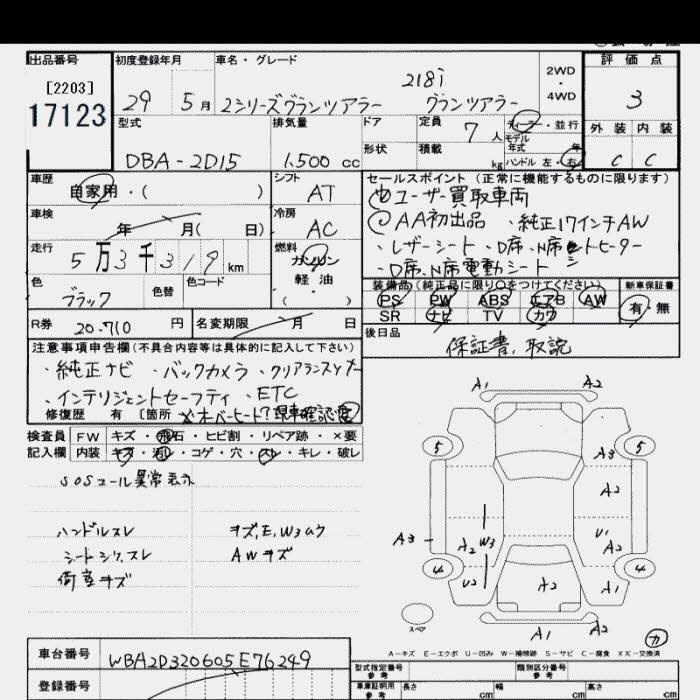 出品番号 初度登録年月 車名・グレード 2WD・4WD 評価点
[2203]
17123
29 5月 2シリーズグランツアラー 218i グランツアラー 3
型式 排気量 ドア 定員 7人 ディーラー・並行 外装 内装
DBA-2D15 1.500 cc 形状 積載 kg モデル年式 年 ハンドル 左・右 C C
車歴 自家用・( ) シフト AT セールスポイント(正常に機能するものに限ります)
ユーザー買取車両
車検 年 月( 日) 冷房 AC
AA初出品 ・純正17インチAW
走行 5万3千319km 燃料 ガソリン 軽・油 ( )
・レザーシート・D席、N席シートヒーター
・D席、N席電動シート
色 ブラック 色替 色コード
装備品(純正品に限り○をつけてください) 新車保証書
PS PW ABS エアB AW 有・無
SR ナビ TV カワ
R券 20.710円 名変期限 月 日
後日品 保証書、取説
注意事項申告欄(不具合内容等は具体的に記入して下さい)
・純正ナビ ・バックカメラ ・クリアランスソナー
・インテリジェントセーフティ ・ETC
修復歴 有 〔箇所 現車確認
検査員 FW キズ・飛石・ヒビ割・リペア跡・×要
記入欄 内装 キズ・汚レ・コゲ・穴・スレ・キレ・破レ
SOSコール異常表示
ハンドルスレ キズ,E,W3ムラ
シートシワ,スレ AWキズ
荷室キズ
A1 A2
5 5
A3
A2
A3 A2 W3 U1 A2
4 U2 A2 A1 4
スペア
A1 A2
カ
A-キズ E-エクボ U-凹み W-補修跡 S-サビ C-腐食 XX-交換済
車台番号 WBA2D320605E76249
型式指定番号 参考 類別区分番号 参考
登録番号
車庫証明用 参考 長さ cm 幅 cm 高さ cm